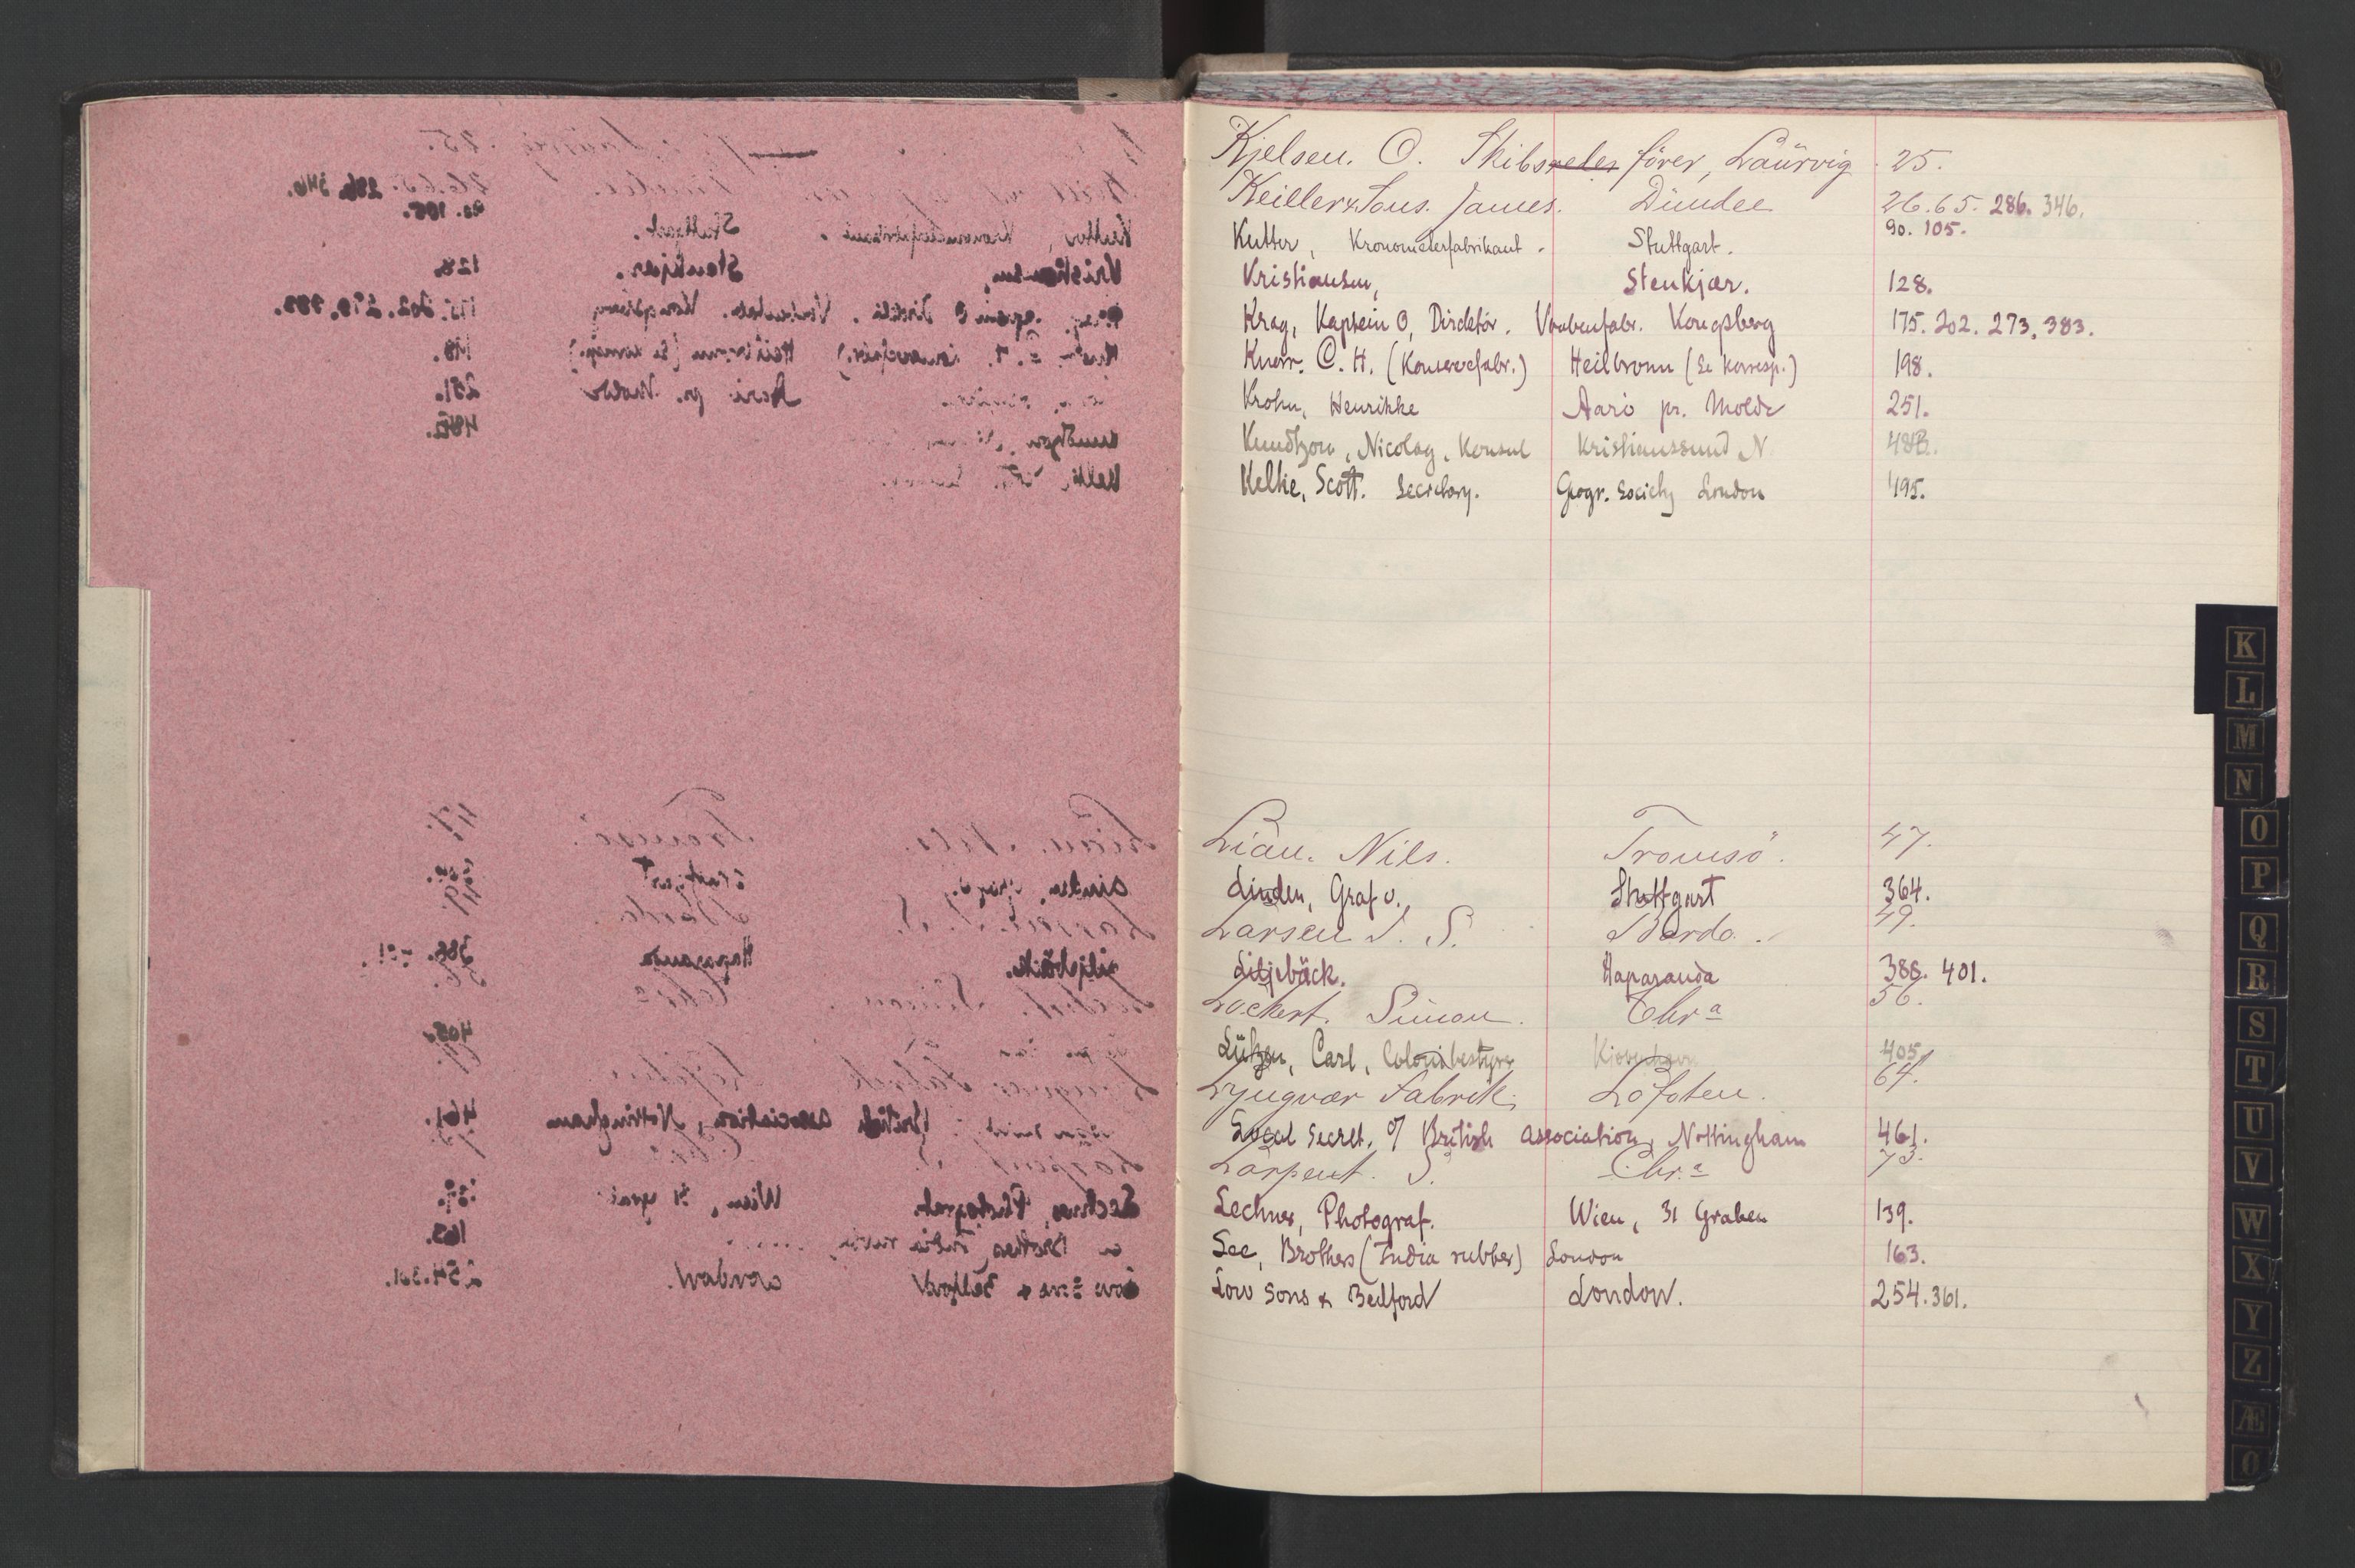 Kjelsen. O. Skibsreder förer, Laurvig 25.
Keiller & Sons. James. Dundee 26. 65. 286. 346.
Kutter, Kronometerfabrikant. Stuttgart. 90. 105.
Kristiansen, Stenkjær. 128.
Krag, Kaptein O, Direktör. Vaabenfabr. Kongsberg 175. 202. 273. 383.
Knorr. C. H. (Konservefabr.) Heilbronn (Se korresp.) 198.
Krohn, Henrikke Aarö pr. Molde 251.
Knudtzon, Nicolay, Konsul Kristianssund N.
Keltie, Scott. Secretary. Geogr. Society London 495.
Lian. Nils. Tromsö. 47.
Linden, Graf v. Stuttgart 364.
Larsen S. S. 49.
Liljebäck. Haparanda 388. 401.
Lockert. Simon. Chrᵃ 56.
Lützen, Carl, Colonibestyrer Kjøbenhavn 405
Lyngvær Fabrik. Lofoten. 64.
Local Secret. of British Association, Nottingham 461.
Larpent. S. Chr.ᵃ 73.
Lechner, Photograf. Wien, 31 Graben 139.
Lee, Brothers (India rubber) London 163.
Low Sons & Bedford London. 254. 361.
K
L
M
N
O
P
Q
R
S
T
U
V
W
X
Y
Z
Æ
O